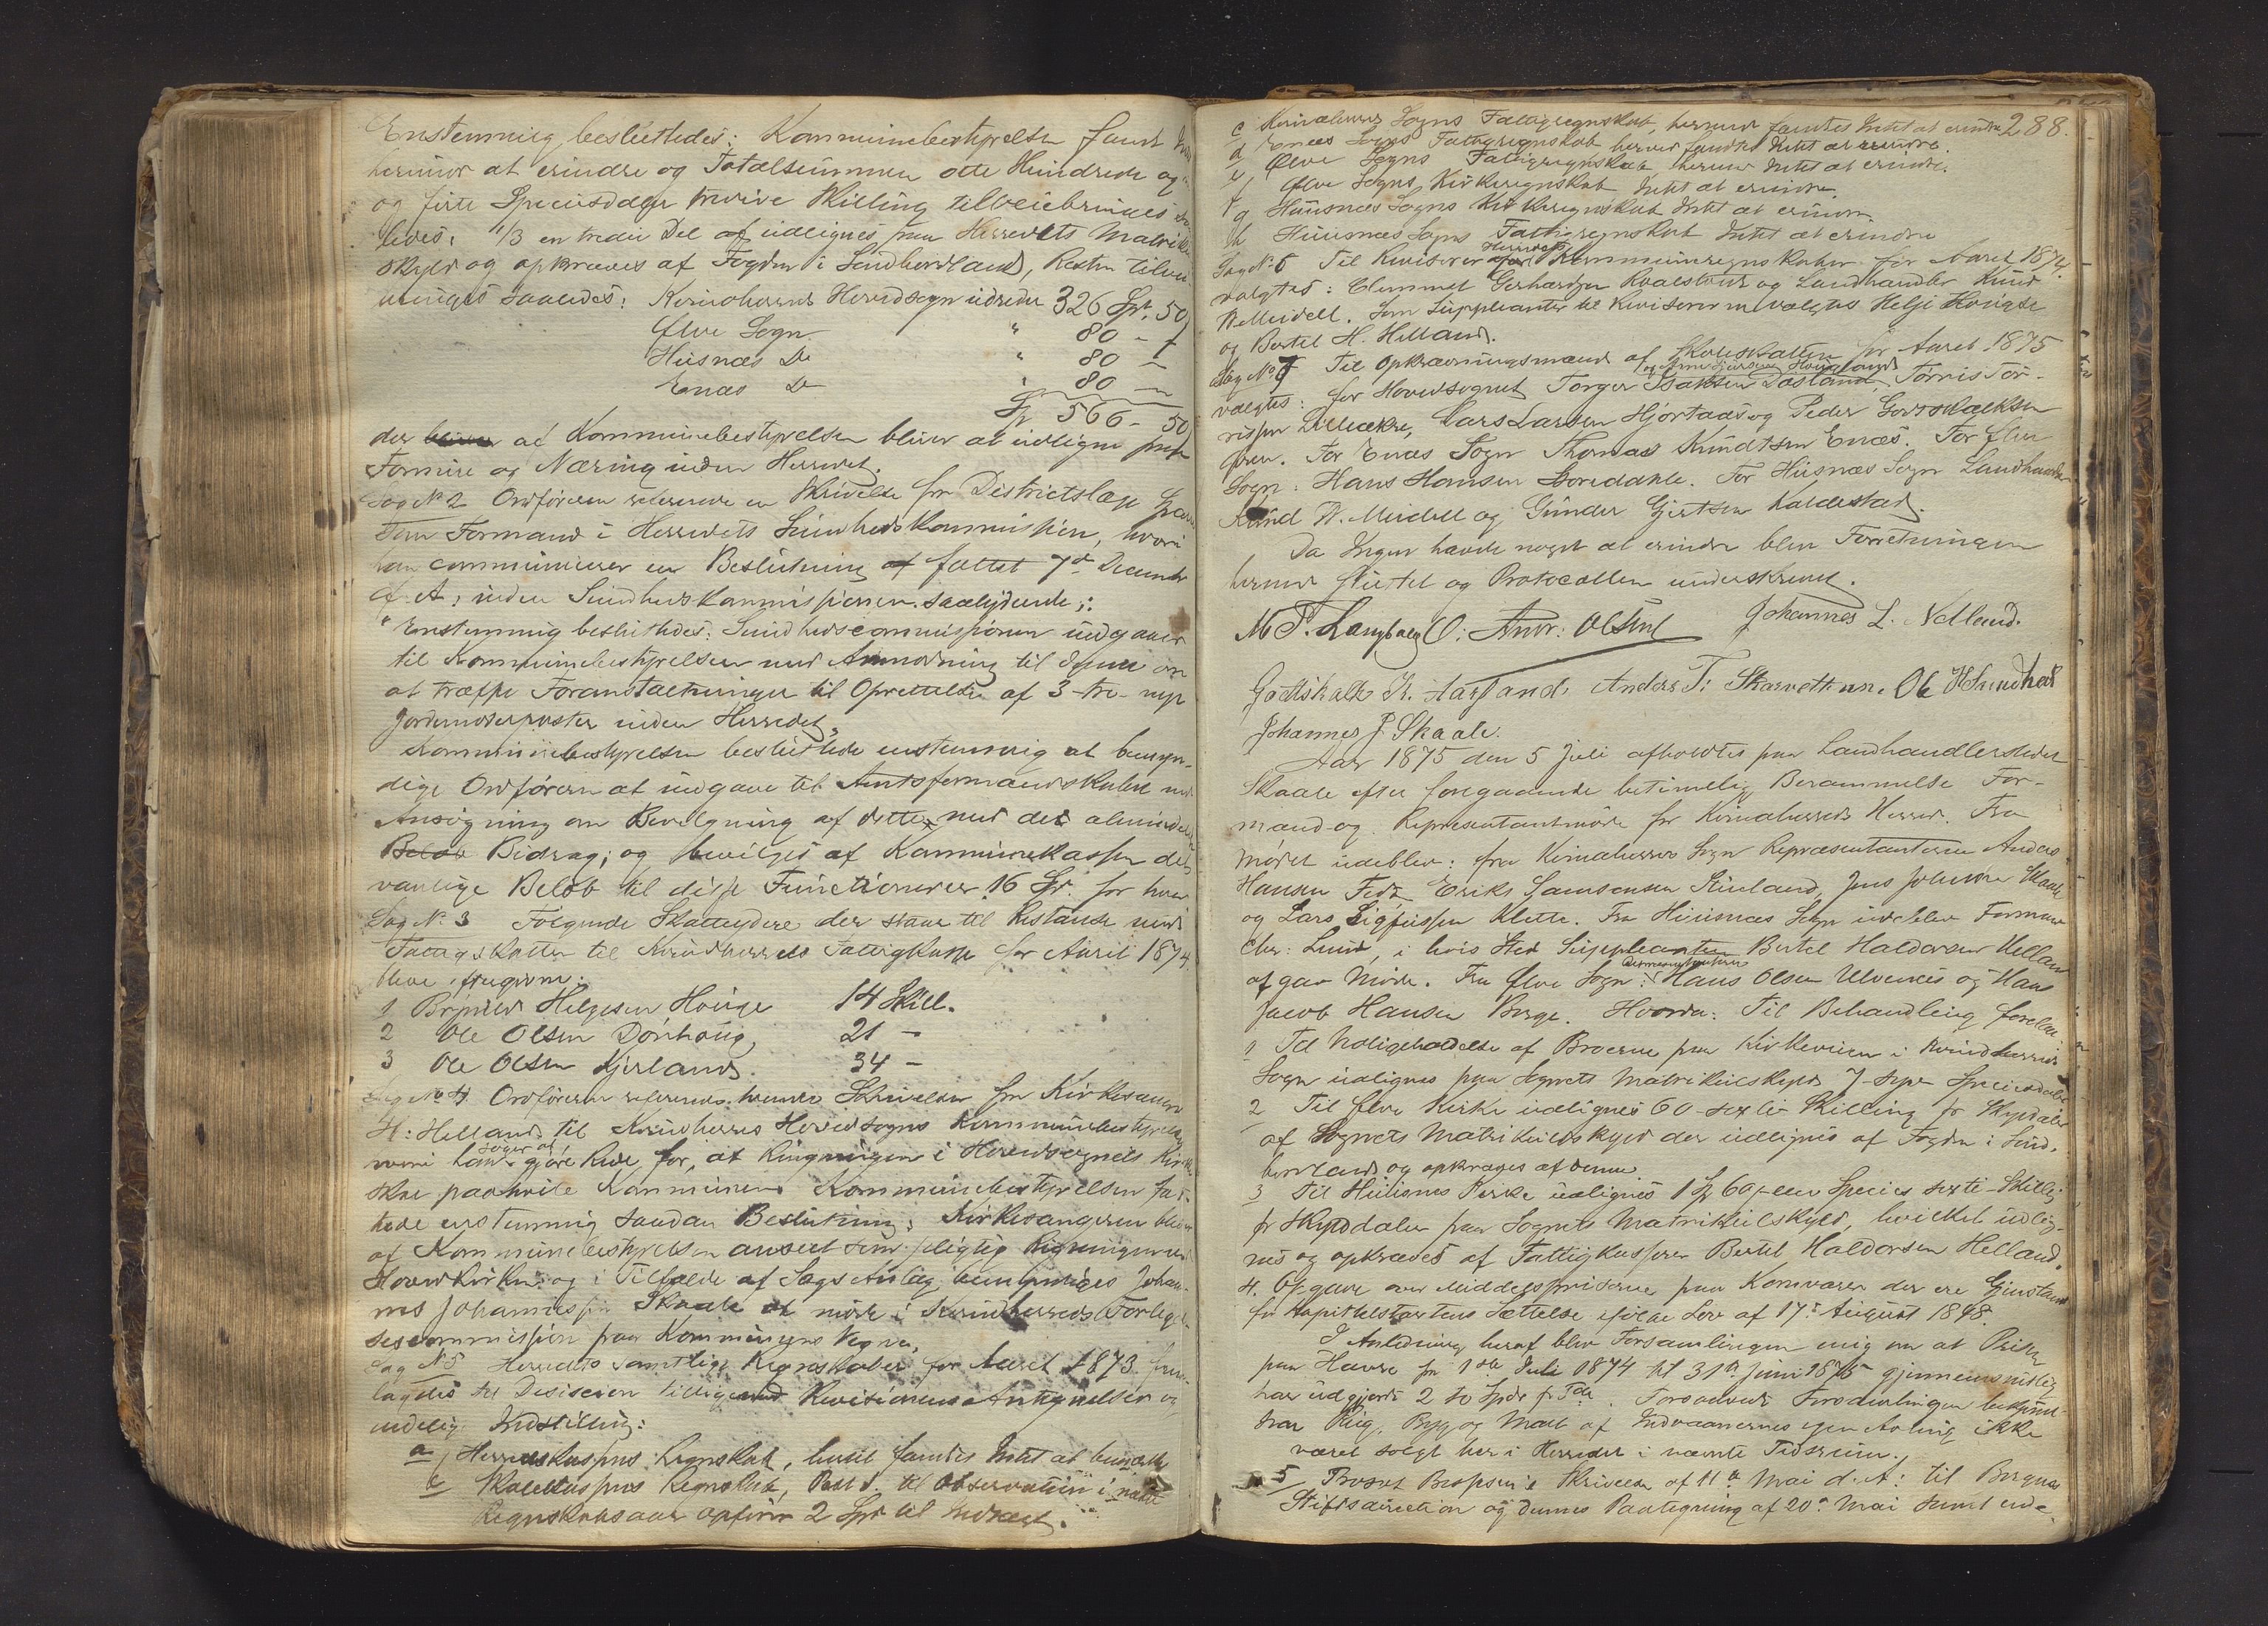 Enstemmig besluttedes: Kommunebestyrelsen fandt
herimod at erindre og Totalsummen otte Hundrede og
og firti Speciesdaler Skilling tilveiebringes saa
ledes: 1/3 en tredie Del af udlignes paa Herredets Matrikul
skyld og opkræves af Fogden i Søndhordland, Resten tilvei
bringes saaledes: Kvindherred Hovedsogn udreder 326 Spd. 50
Ølve Sogn " 80 -
Husnæs Do " 80 -
Enæs Do " 80 -
Sp. 566 - 50
der af Kommunebestyrelsen bliver at udligne paa
Formue og Næring inden Herredet.
Sag No 2 Ordføreren refererede en Skrivelse fra Districtslæge
som Formand i Herredets Sundhedskommission, hvori
han communicerer en Beslutning af fattet 7de December
f. A. inden Sundhedskommissionen saalydende:
"Enstemmig besluttedes: Sundhedscommissionen indgaaer
til Kommunebestyrelsen med Anmodning til denne om
at træffe Foranstaltninger til Oprettelse af 3 -tre- nye
Jordemoderposter inden Herredet"
Kommunebestyrelsen besluttede enstemmig at bemyn-
dige Ordføreren at indgaae til Amtsformandskabet med
Ansøgning om Bevilgning af dette med det almindelige
Beløb Bidrag; og bevilges af Kommunekassen det
vanlige Beløb til disse Functionærer 16 Spd. for hver
Sag No 3 Følgende Skatteydere der staar til Restance med
Fattigskatten til Kvindherreds Fattigkasse for Aaret 1874
bleve frigivne:
1 Brynild Helgesen Houge 14 Skill.
2 Ole Olsen Dønhaug, 21 -
3 Ole Olsen Kjerland. 34 -
Sag No 4. Ordføreren refererede tvende Skrivelser fra Kirkesanger
H. Helland til Kvindherreds Hovedsogns Kommunebestyrelse
hvori han søger at gjøre Rede for, at Ringningen i Hovedsognets Kirke
skal paahvile Kommunen. Kommunebestyrelsen fat-
tede enstemmig saadan Beslutning: Kirkesangeren bliver
af Kommunebestyrelsen anseet som pligtig Rigningen ved
Hovedkirken og i Tilfælde af Sags Anlæg bemyndiges Johan-
nes Johannessen Skaale at møde i Kvindherreds Forligel-
sescommission paa Kommunens Vegne.
Sag No 5 Herredets samtlige Regnskaber for Aaret 1873 frem-
lagdes til Desision tilligemed Revisionens Antegnelser og
endelig Indstilling:
a/ Herredskassens Regnskab, hvortil fandtes Intet at bemærke
b/ Skolekassens Regnskab, Post 1. til Observation i næste
Regnskabsaar opføres 2 Spd til Indtægt.
288.
c Kvindherreds Sogns Fattigregnskab, herimod fandtes Intet at erindre
d Enæs Sogns Fattigregnskab herved fandtes Intet at erindre.
e Ølve Sogns Fattigregnskab herimod Intet at erindre.
f Ølve Sogns Kirkeregnskab Intet at erindre
g Huusnæs Sogns Kirkeregnskab Intet at erindre.
h Huusnæs Sogns Fattigregnskab Intet at erindre
Sag No 6 Til Revisorer af Herredets Kommuneregnskaber for Aaret 1874
valgtes: Clemmet Gerhardsen Roalstvedt og Landhandler Knud
W Meidell. Som Suppleanter til Revisorerne valgtes Helje Hougse
og Bertel H. Helland.
Sag No 7 Til Opkrævningsmænd af Skoleskatten for Aaret 1875
valgtes: for Hovedsognet Torger Isaksen Døsland, og Arne Gjersen Hougland Tørris Tør-
rissen Lilleækre, Lars Larsen Hjortaas og Peder Godtskalksen
Øren. For Enæs Sogn Thomas Knudtsen Enæs. For Ølve
Sogn: Hans Hansen Boredahle. For Husnæs Sogn Landhandler
Knud W. Meidell og Gunder Gjertsen Kaldestad.
Da Ingen havde noget at erindre blev Forretningen
hermed sluttet og Protocollen underskrevet.
M T. Langballe O: Andr: Olsen Johannes L. Netland.
Godtskalk Kr. Aarsand. Anders T: Skarvettun. Ole H Sundnæs
Johannes J. Skaale.
Aar 1875 den 5 Juli afholdtes paa Landhandlerstedet
Skaale efter foregaaende betimelig Berammelse For-
mand og Representantmøde for Kvindherreds Herred. Fra
mødet udeblev: fra Kvindherreds Sogn Repræsentanterne Anders
Hansen Fedt Eriks Samsonsen Guland, Jens Johnsen Skaale
og Lars Sigfussen Klette. Fra Huusnæs Sogn udeblev Formand
Chr: Lund, i hvis Sted Suppleanten Bertel Haldorsen Helland
afgav Møde. Fra Ølve Sogn: Hans Olsen Ulvenes og Hans
Jacob Hansen Borge. Hvorda: Til Behandling forelaa:
1 Til Vedligeholdelse af Broerne paa Kirkeveien i Kvindherreds
Sogn udlignes paa Sognets Matrikulskyld 7-syv- Speciesdaler
2 Til Ølve Kirke udlignes 60 -sexti- Skilling pr Skylddaler
af Sognets Matrikulskyld der udlignes af Fogden i Sønd-
hordland og opkræves af denne
3 Til Huusnes Kirke udlignes 1 Sp 60/-een Species sexti- Skilling
pr Skylddaler paa Sognets Matrikulskyld, hvilket udlig-
nes og opkræves af Fattigkasserer Bertel Haldorsen Helland.
4. Opgave over Middelspriserne paa Kornvarer der ere Gjenstand
for Kapitelstaxtens Sættelse ifølge Lov af 17de August 1848.
I Anledning heraf blev Forsamlingen enig om at Prisen
paa Havre fra 1ste Juli 1874 til 31te Juni 1875 gjennemsnitlig
har udgjort 2 to Spdr pr Tde. Forsaavidt Forsamlingen bekjendt
har Rug, Byg og Malt af Indvaanernes egen Avling ikke
været solgt her i Herredet i nævnte Tidsrum.
5/ Provst Skrivelse af 11te Mai d. A: til Bergens
Stiftsdirection og dennes Paategning af 20de Mai samt ude-